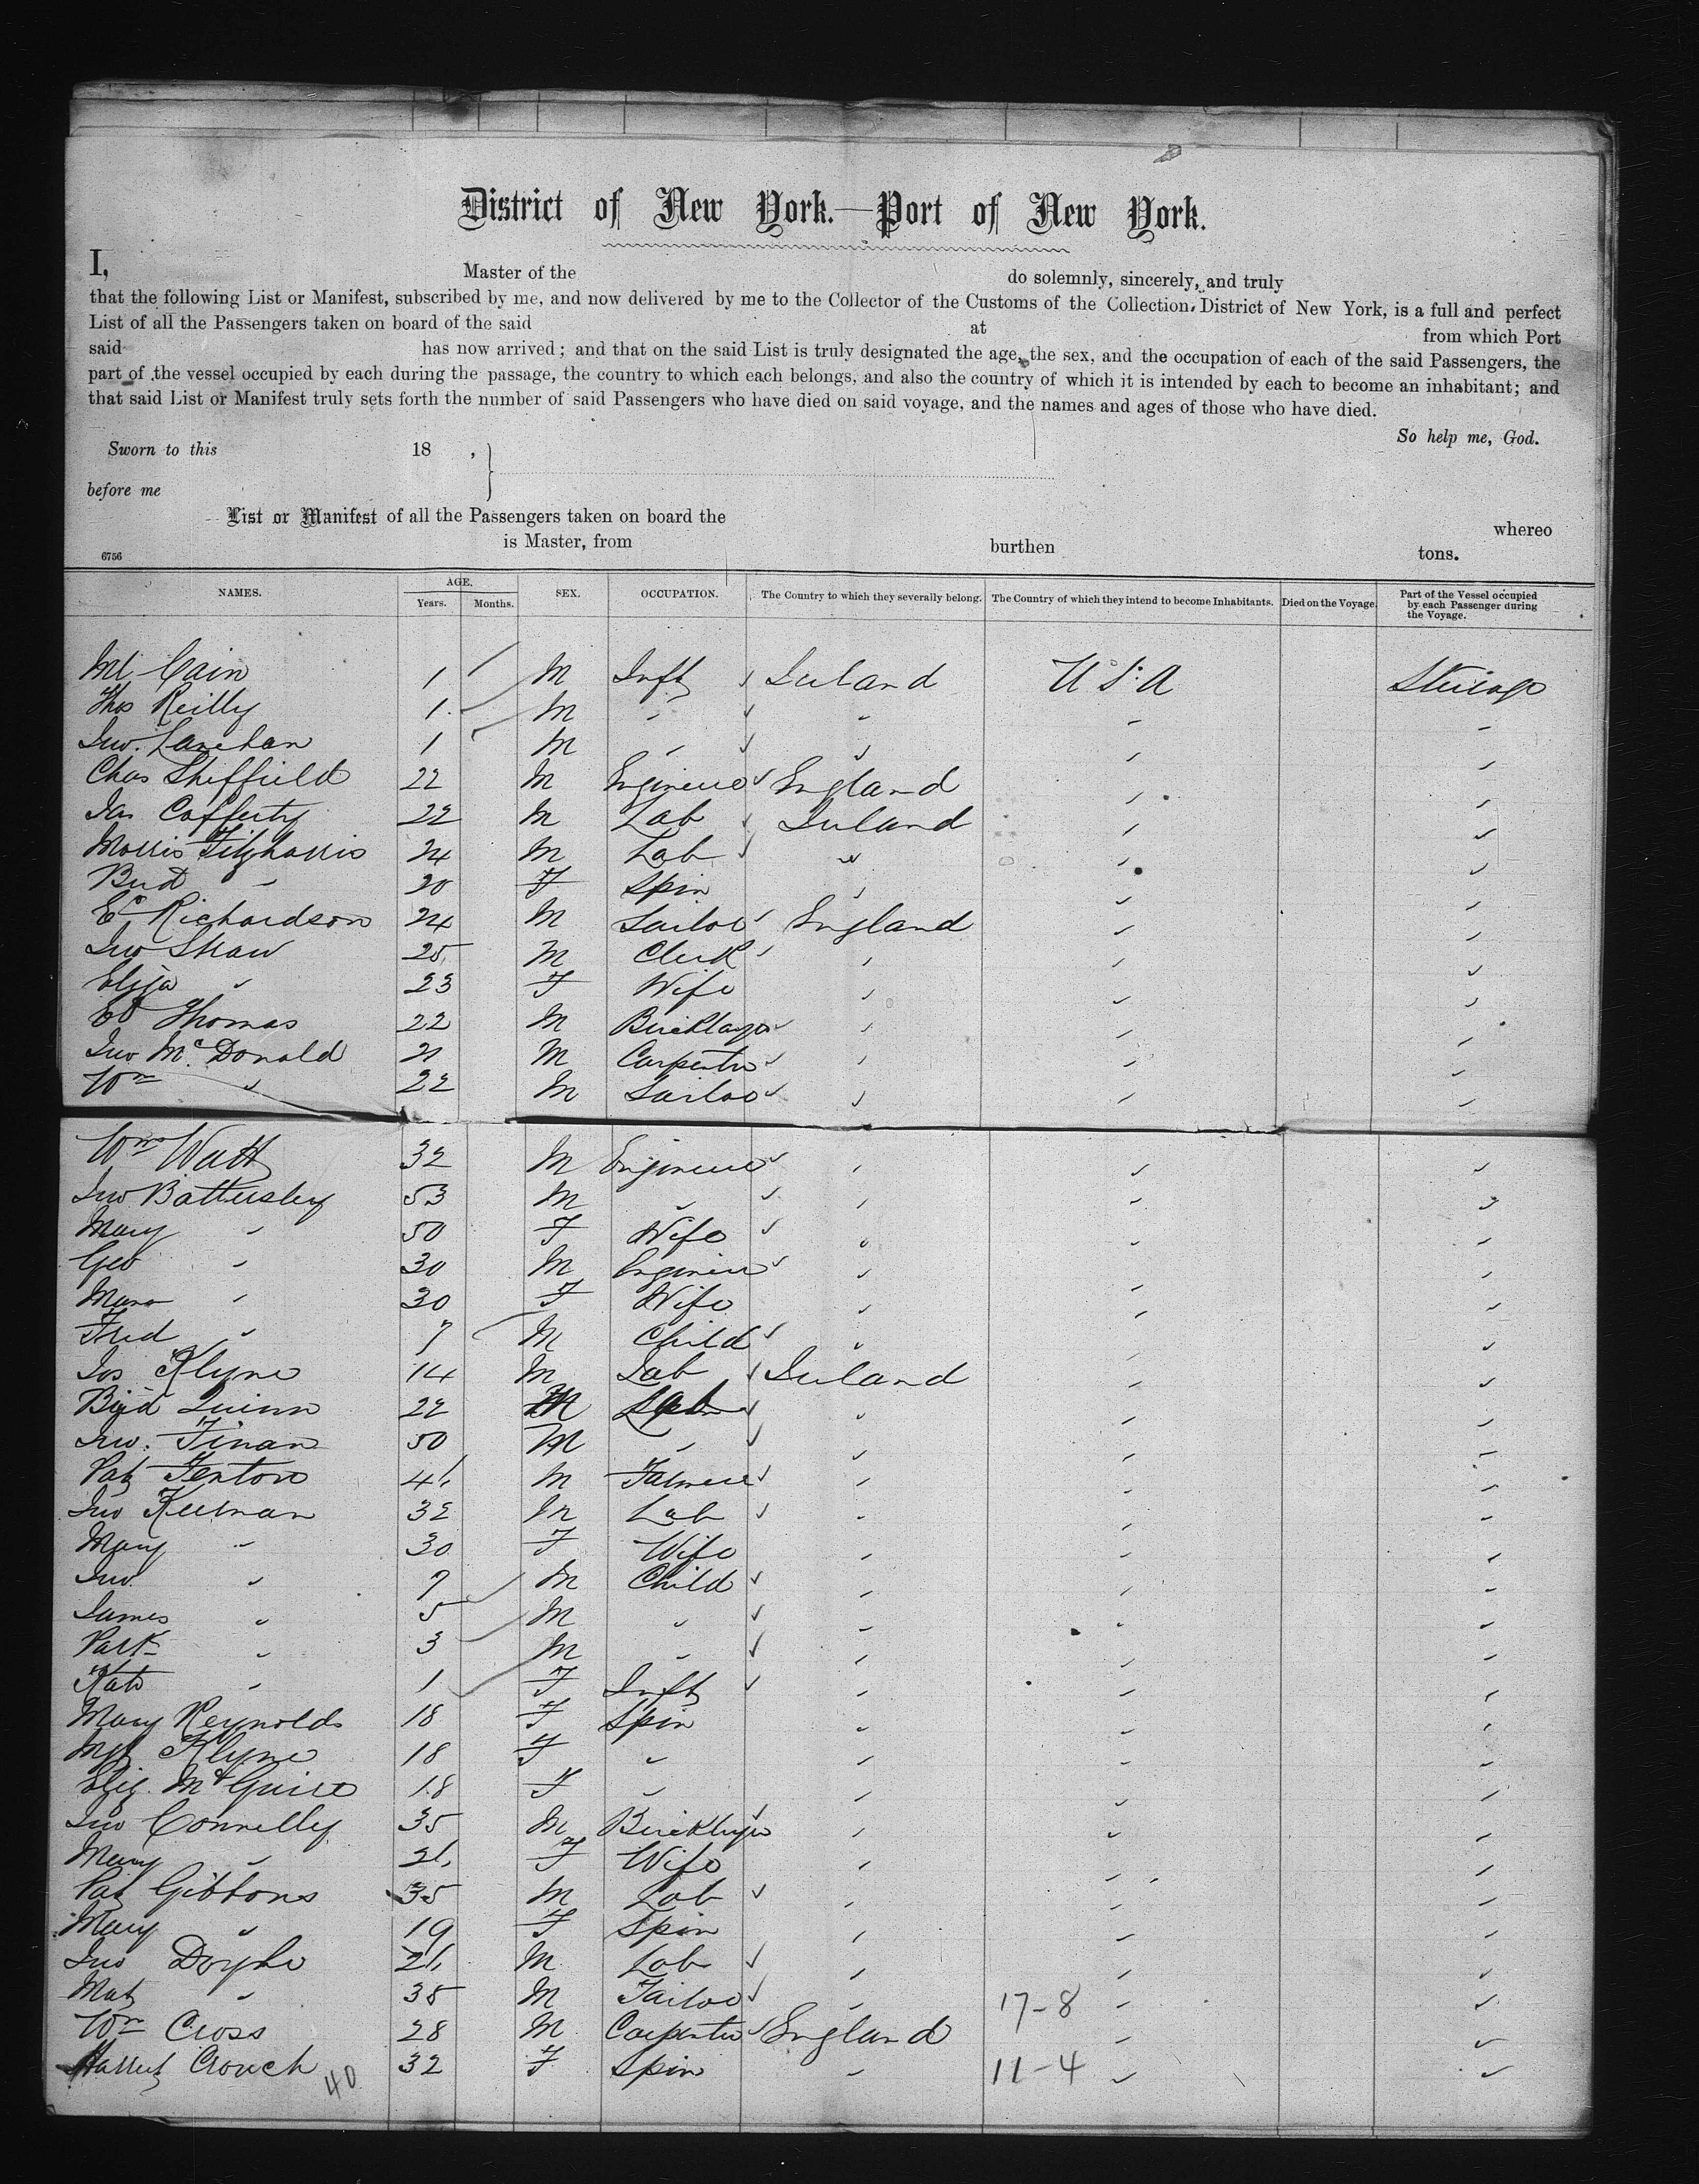 District of New York.—Port of New York.
I, Master of the do solemnly, sincerely, and truly
that the following List or Manifest, subscribed by me, and now delivered by me to the Collector of the Customs of the Collection District of New York, is a full and perfect
List of all the Passengers taken on board of the said at from which Port
said has now arrived; and that on the said List is truly designated the age, the sex, and the occupation of each of the said Passengers, the
part of the vessel occupied by each during the passage, the country to which each belongs, and also the country of which it is intended by each to become an inhabitant; and
that said List or Manifest truly sets forth the number of said Passengers who have died on said voyage, and the names and ages of those who have died.
So help me, God.
Sworn to this 18 ,
before me
List or Manifest of all the Passengers taken on board the whereo
is Master, from burthen tons.
6756
NAMES. AGE. Years. Months. SEX. OCCUPATION. The Country to which they severally belong. The Country of which they intend to become Inhabitants. Died on the Voyage. Part of the Vessel occupied by each Passenger during the Voyage.
Ml Cain 1 M Inft Ireland U.S.A Steerage
Thos Reilly 1 M " " " "
Jno. Lanehan 1 M " " " "
Chas Sheffield 22 M Engineer England " "
Jas Cafferty 22 M Lab Ireland " "
Morris Fitzharris 24 M Lab " " "
Brid " 20 F Spin " " "
Ed Richardson 24 M Sailor England " "
Jno Shaw 25 M Clerk " " "
Eliza " 23 F Wife " " "
Ed Thomas 22 M Bricklayer " " "
Jno McDonald 21 M Carpenter " " "
Wm " 22 M Sailor " " "
Wm Watt 32 M Engineer " " "
Jno Battersley 53 M " " " "
Mary " 50 F Wife " " "
Geo " 30 M Engineer " " "
" 30 F Wife " " "
Fred " 7 M Child " " "
Jos Klyne 14 M Lab Ireland " "
Quinn 22 M Lab " " "
Jno. Finan 50 M " " " "
Pat Fenton 41 M Farmer " " "
Jno Keenan 32 M Lab " " "
Mary " 30 F Wife " " "
Jno " 7 M Child " " "
James " 5 M " " " "
Patk " 3 M " " " "
Kate " 1 F Inft " " "
Mary Reynolds 18 F Spin " " "
Mgt Klyne 18 F " " " "
Eliz. McGuire 18 F " " " "
Jno Connelly 35 M Bricklayer " " "
Mary " 21 F Wife " " "
Pat Gibbons 35 M Lab " " "
Mary " 19 F Spin " " "
Jno Doyle 21 M Lab " " "
Mat " 38 M Tailor " 17-8 " "
Wm Cross 28 M Carpenter England " "
Harriet Crouch 32 F Spin " 11-4 " "
40